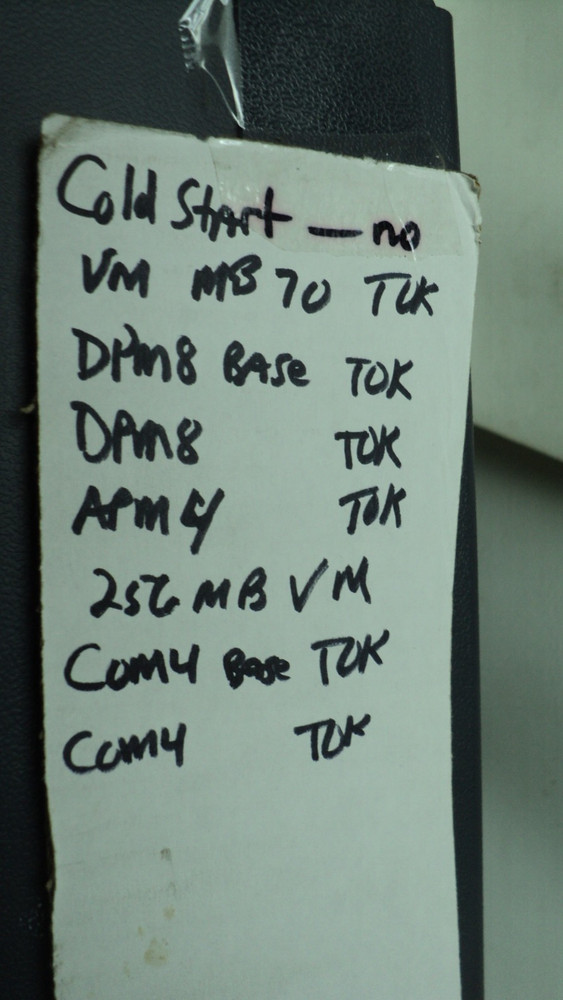 Cold Start — no
VM MB 70 TOK
DPM8 BASE TOK
DPM8 TOK
APM4 TOK
256 MB VM
COM4 Base TOK
COM4 TOK